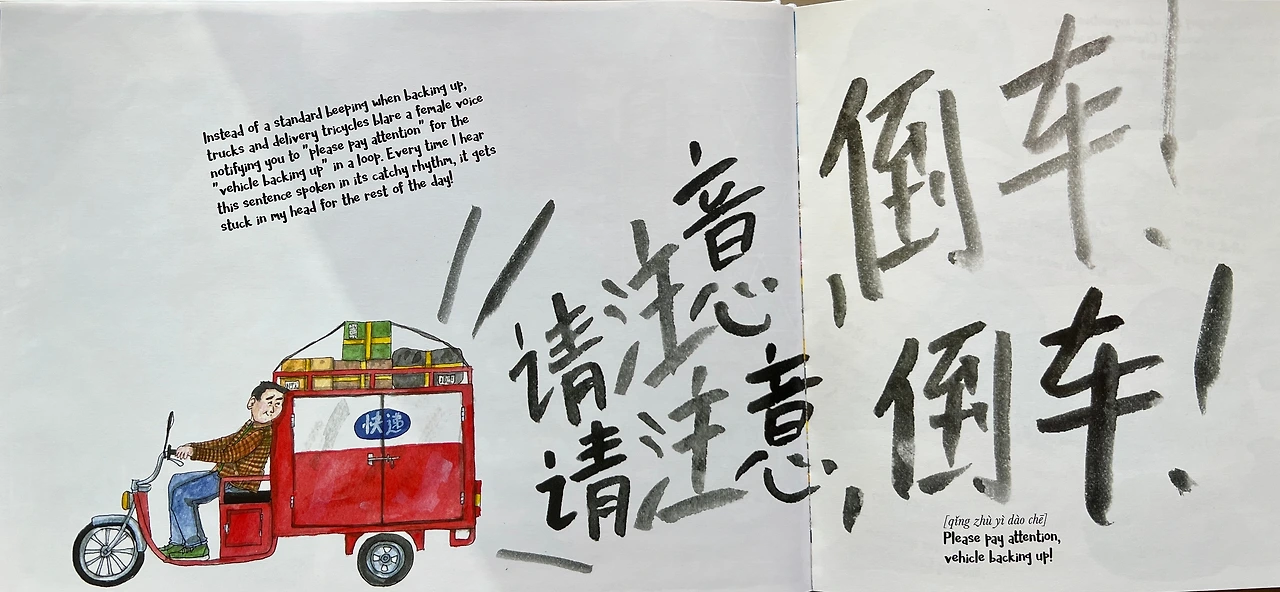 Instead of a standard beeping when backing up,
trucks and delivery tricycles blare a female voice
notifying you to "please pay attention" for the
"vehicle backing up" in a loop. Every time I hear
this sentence spoken in its catchy rhythm, it gets
stuck in my head for the rest of the day!
快递
请注意,倒车!
请注意,倒车!
[qǐng zhù yì dào chē]
Please pay attention,
vehicle backing up!